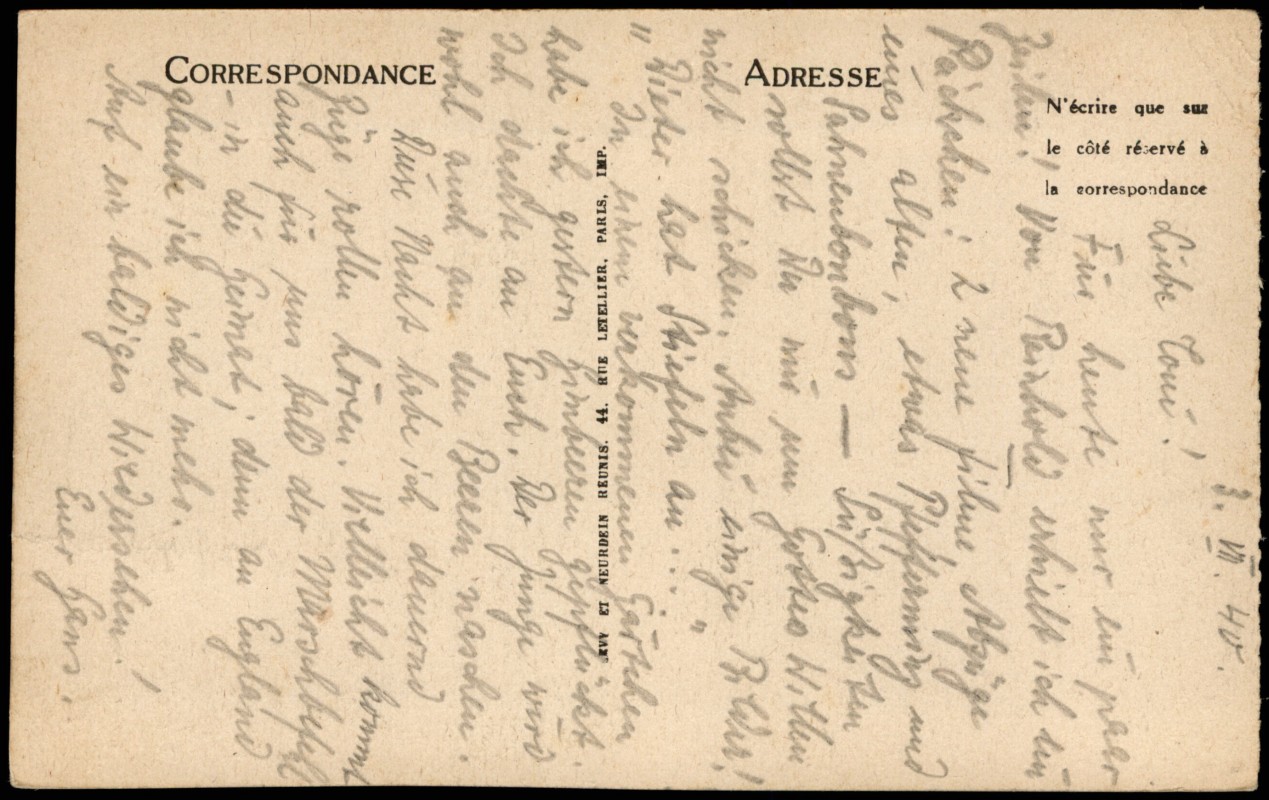 CORRESPONDANCE
ADRESSE
N'écrire que sur
le côté réservé à
la correspondance
LEVY ET NEURDEIN RÉUNIS. 44. RUE LETELLIER, PARIS, IMP.
3. VI. 40.
Liebe Toni!
Für heute nur ein paar
Zeilen! Von Reinhold erhielt ich ein
Päckchen: 2 neue Filme, Abzüge
eines alten, etwas Pfefferminz und
Sahnenbonbons — Süßigkeiten
sollst Du mir um Gottes Willen
nicht schicken. Anbei einige
"Dieter hat Stiefeln an..."
In einem verkommenen Gärtchen
habe ich gestern Himbeeren gepflückt.
Ich dachte an Euch. Der Junge wird
wohl auch an den Beeren naschen.
Diese Nacht habe ich dauernd
Züge rollen hören. Vielleicht kommt
auch für uns bald der Marschbefehl
- in die Heimat; denn an England
glaube ich nicht mehr.
Auf ein baldiges Wiedersehen!
Euer Hans.